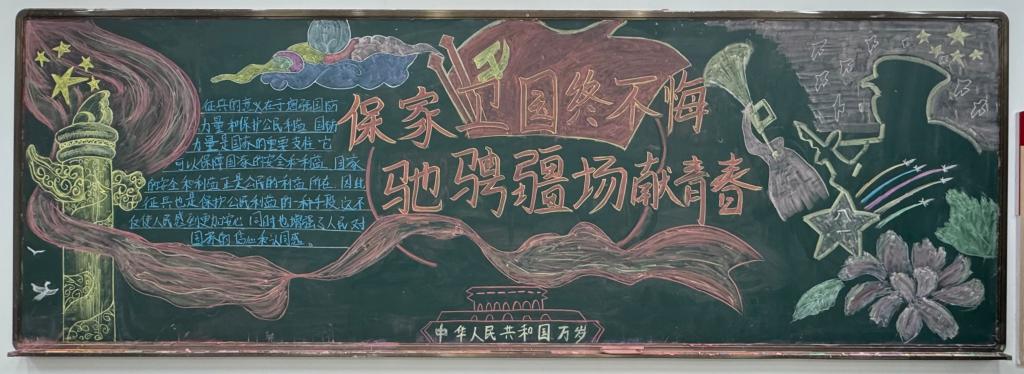 保家卫国终不悔
驰骋疆场献青春
征兵的意义在于增强国防
力量和保护公民利益 国防
力量是国家的重要支柱 它
可以保障国家的安全和利益 国家
的安全和利益正是公民的利益所在 因此
征兵也是保护公民利益的一种手段 这不
仅使人民感到更加安心 同时也增强了人民对
国家的信心和认同感。
八一
中华人民共和国万岁